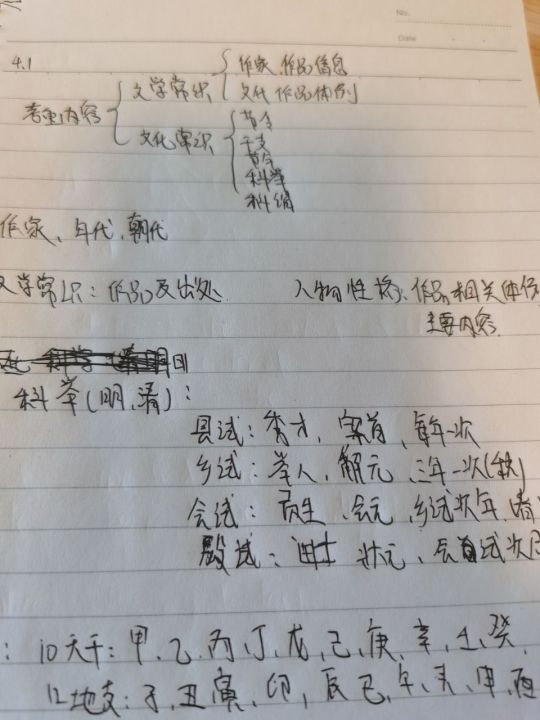 No.
Date
4.1
作家、作品信息
文学常识
文化作品体例
考查内容
节令
文化常识
干支
节令
科举
科编
作家、年代、朝代
文学常识：作品及出处 人物性格、作品相关体
主要内容
科举(明、清)：
县试：秀才、案首、每年一次
乡试：举人、解元、三年一次(秋)
会试：贡生、会元、乡试次年、春
殿试：进士 状元、会试次月
：10天干：甲、乙、丙、丁、龙、己、庚、辛、壬、癸
12地支：子、丑、寅、卯、辰、巳、午、未、申、酉